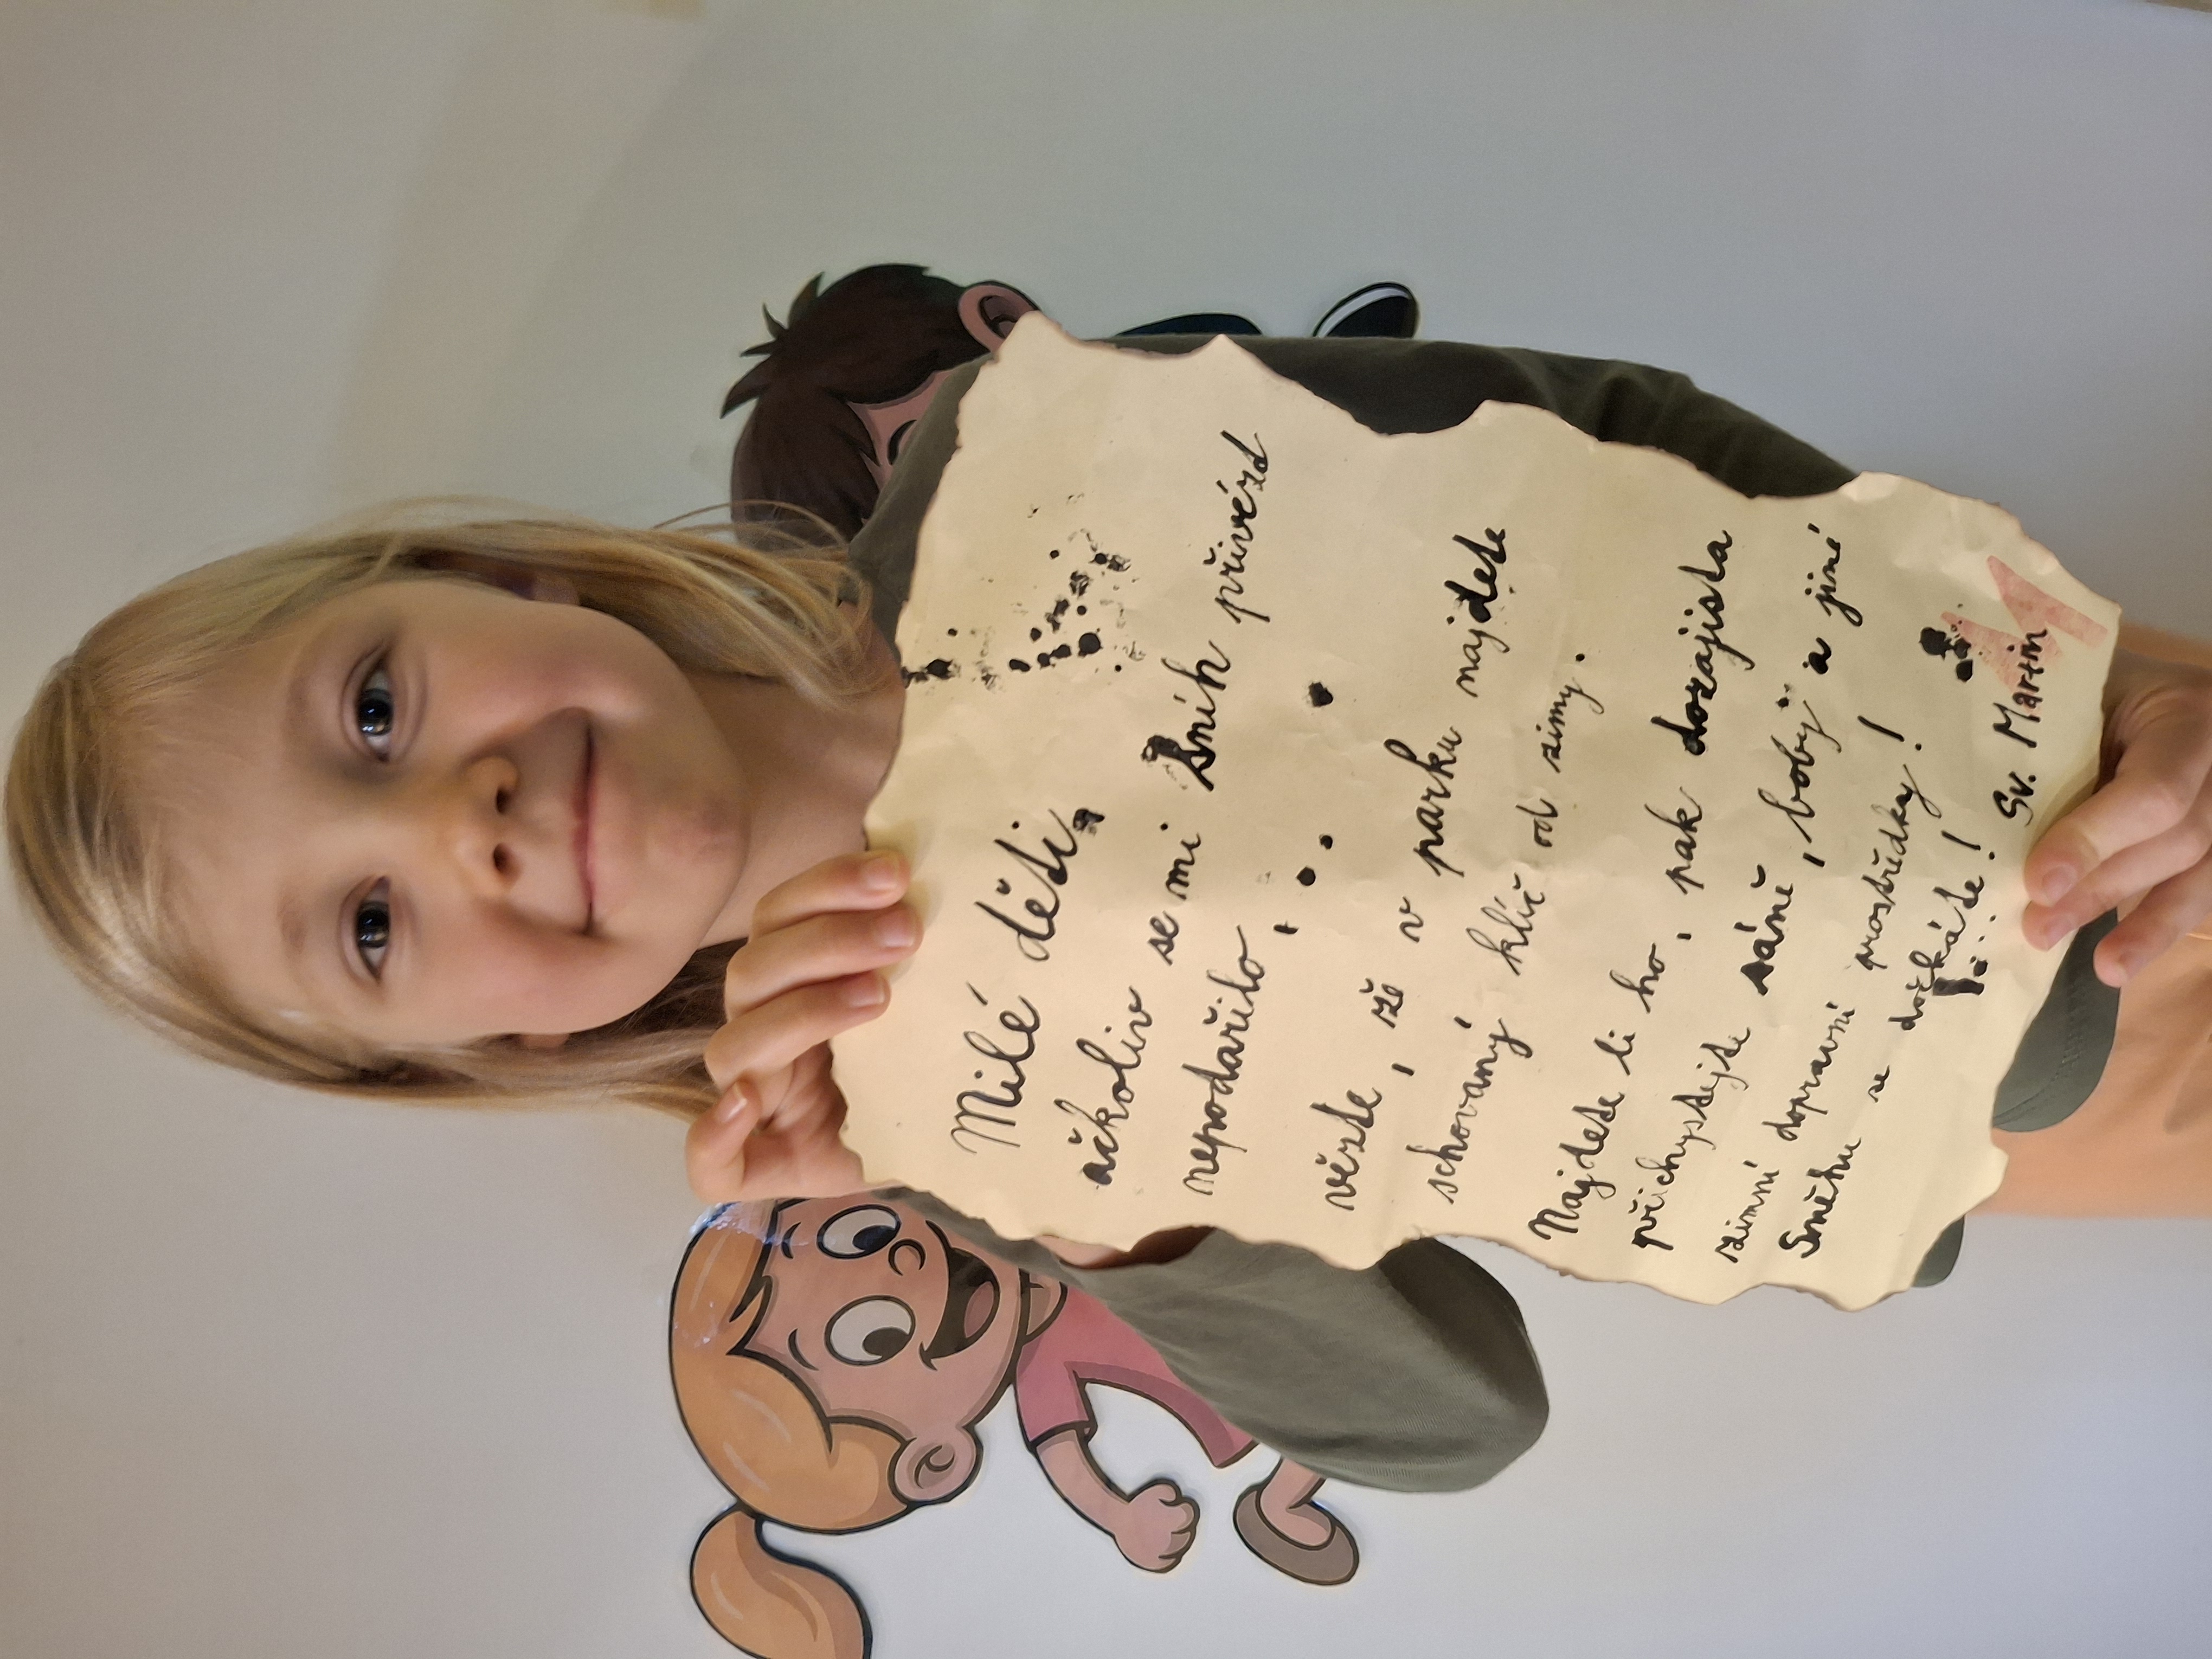 Milé děti,
ačkoliv se mi sníh přivézt
nepodařilo,
vězte, že v parku najdete
schovaný klíč od zimy.
Najdete li ho, pak dozajista
přichystejte sáně, boby a jiné
zimní dopravní prostředky!
Sněhu se dočkáte!
Sv. Martin